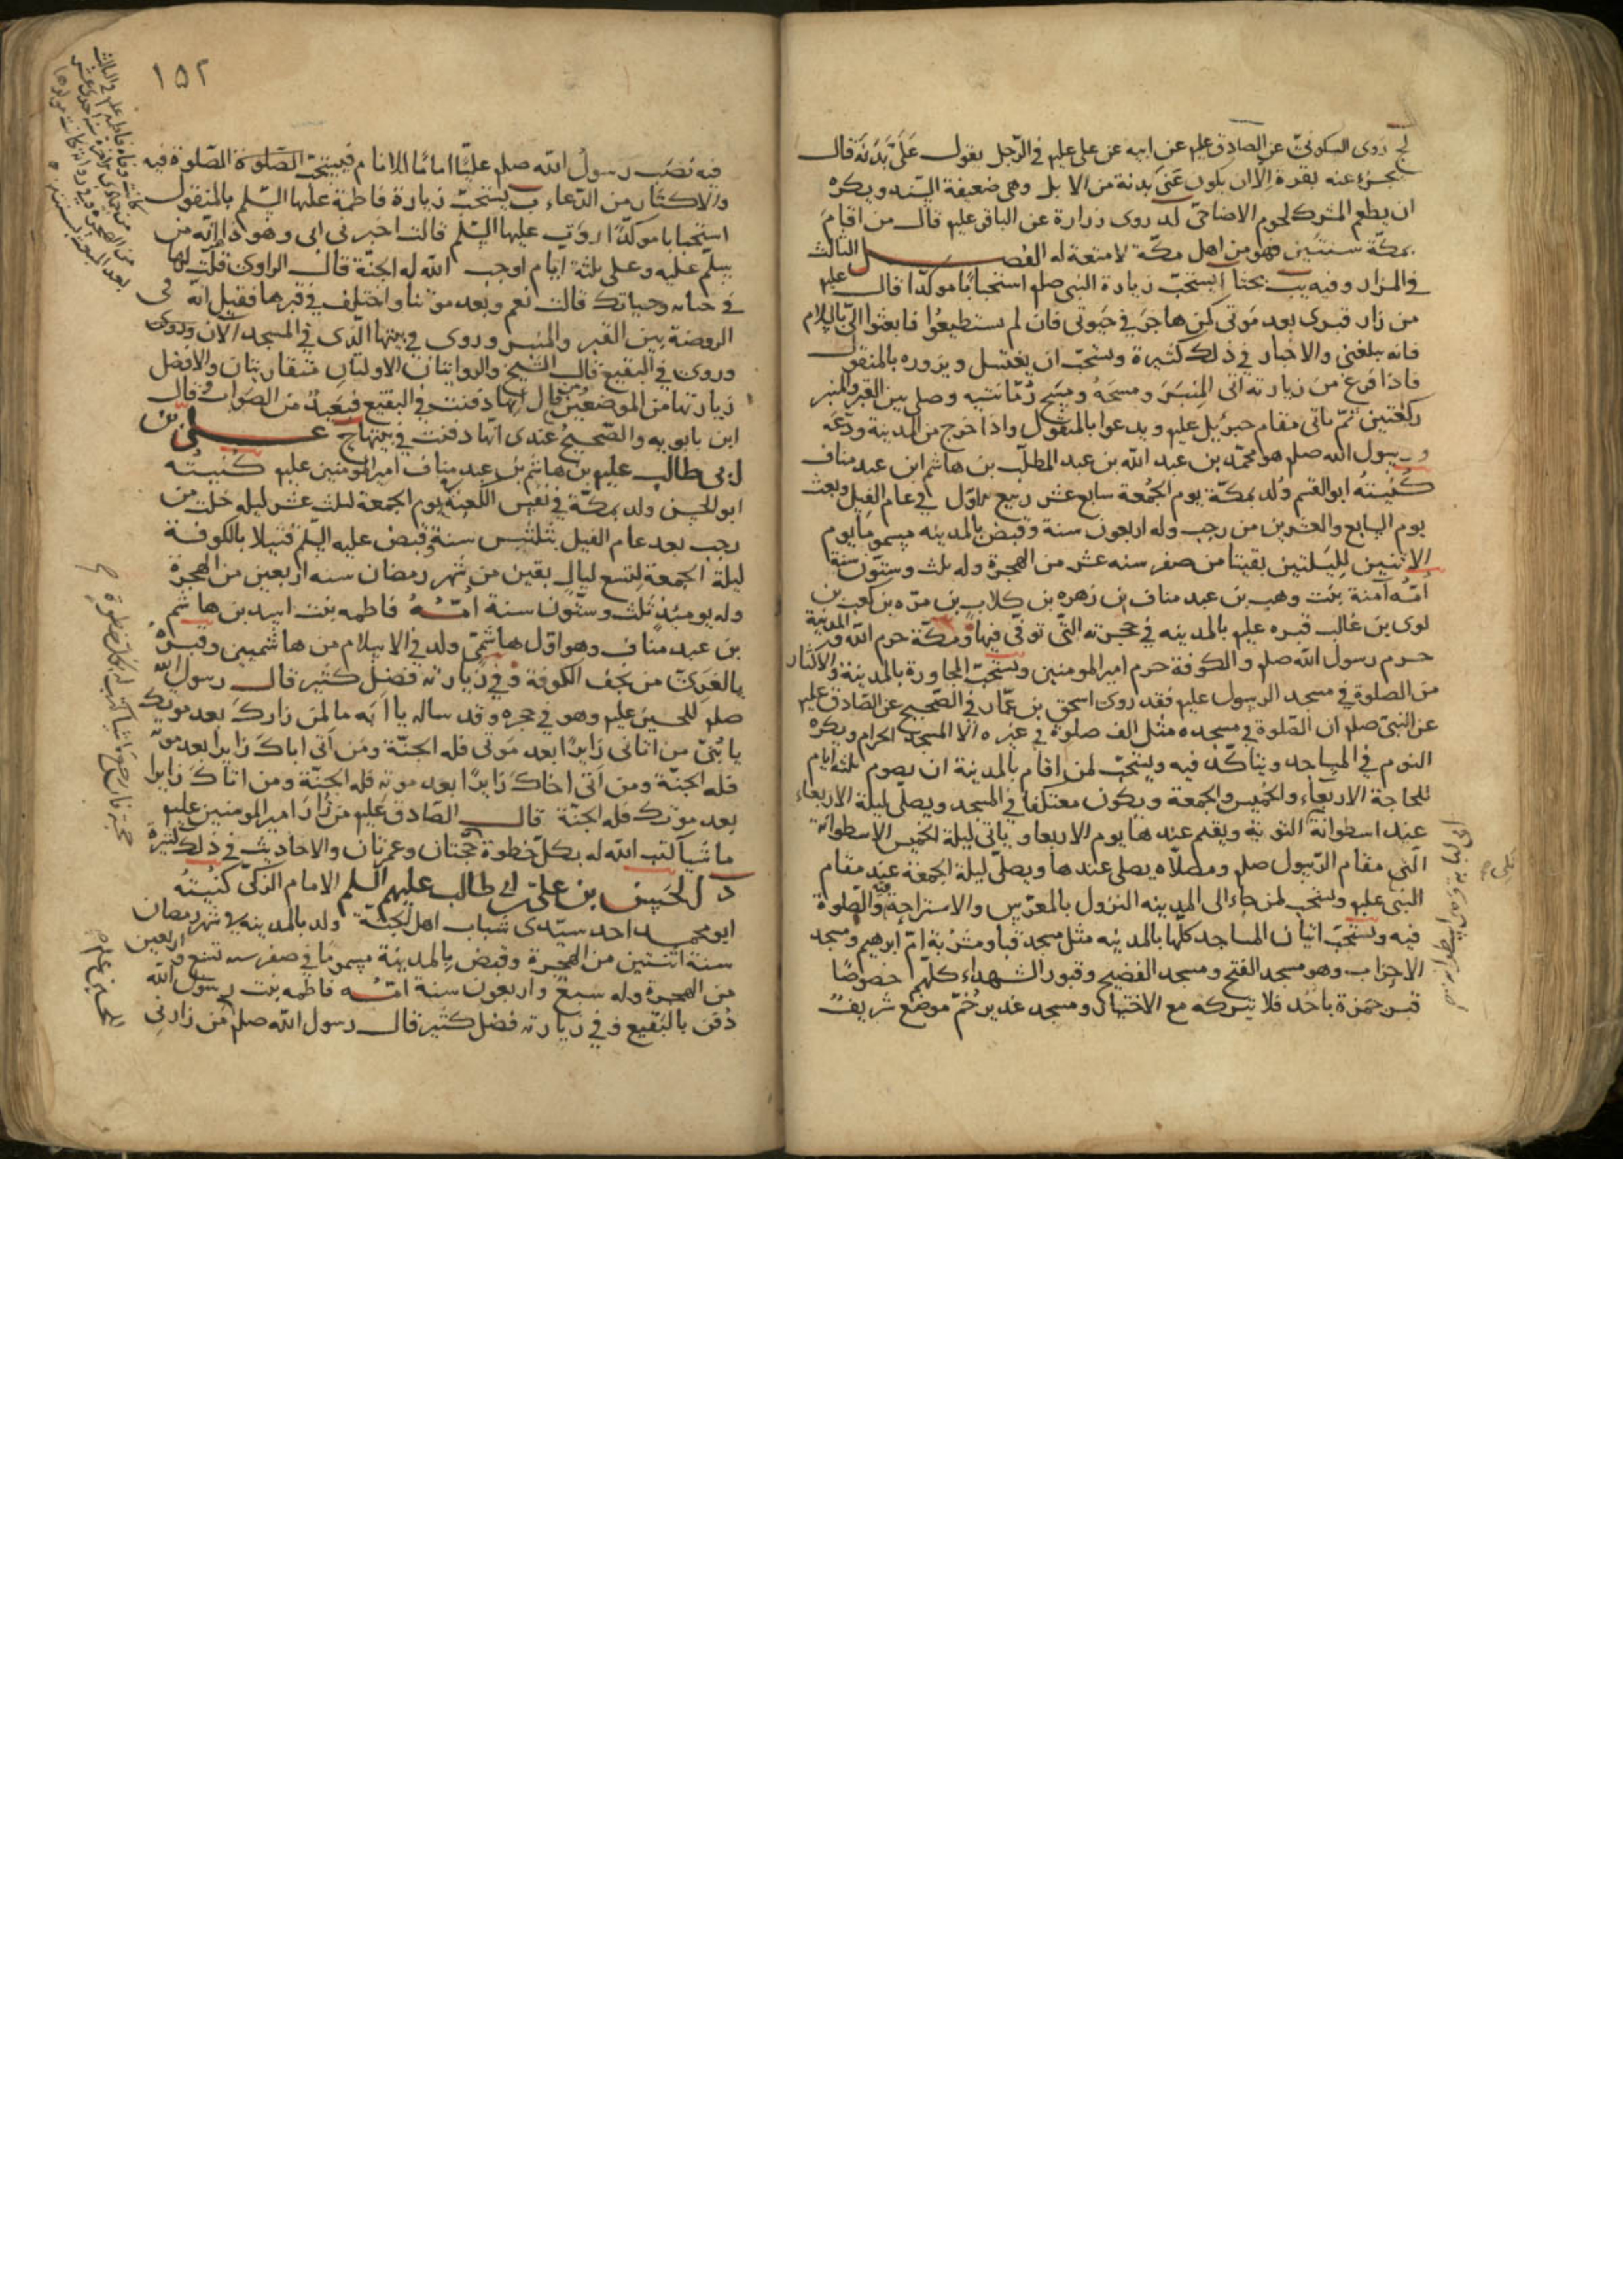 لج روى السكونى عن الصادق علیم عن ابيه عن على علیم فى الرّجل يقول علىّ بدنة قال
تجزئ عنه بقرة الا ان يكون عنى بدنة من الابل وهى ضعيفة السّند ويكره
ان يطعم المشرك لحوم الاضاحىّ لد روى زرارة عن الباقر علیم قال من اقام
بمكّة سنتين فهو من اهل مكّة لا متعة له الفصل الثالث
فى المزار وفيه يب بحثا ا يستحبّ زيارة النبى صلم استحبابًا موكّدا قال علیم
من زار قبرى بعد موتى كمن هاجر فى حيوتى فان لم تستطيعوا فابعثوا الىّ بالسلام
فانه يبلغنى والاخبار فى ذلك كثيرة ويستحبّ ان يغتسل ويزوره بالمنقول
فاذا فرغ من زيارته اتى المنبر ومسحه ومسح رمّانتيه وصلى بين القبر والمنبر
ركعتين ثمّ ياتى مقام جبرئيل علیم ويدعوا بالمنقول واذا خرج من المدينة ودّعه
ورسول الله صلم هو محمّد بن عبد الله بن عبد المطلّب بن هاشم ابن عبد مناف
كنيته ابو القسم وُلد بمكّة يوم الجمعة سابع عشر ربيع الاول فى عام الفيل وبعث
يوم السابع والعشرين من رجب وله اربعون سنة وقبض بالمدينه مسموما يوم
الاثنين لليلتين بقيتا من صفر سنه عشر من الهجرة وله ثلث وستّون سنة
امّه آمنة بنت وهب بن عبد مناف بن زهره بن كلاب بن مرّه بن كعب بن
لوى بن غالب قبره علیم بالمدينه فى حجرته التّى توفّى فيها ومكّة حرم الله والمدينة
حرم رسول الله صلم والكوفة حرم امير المومنين ويستحبّ المجاورة بالمدينة والاكثار
من الصلوة فى مسجد الرسول علیم فقد روى اسحق بن عمّار فى الصّحيح عن الصّادق علیم
عن النبىّ صلم ان الصّلوة فى مسجده مثل الف صلوة فى غيره الا المسجد الحرام ويكره
النوم فى المساجد ويتاكّد فيه ويستحبّ لمن اقام بالمدينة ان يصوم ثلثه ايام
للحاجة الاربعاء والخميس والجمعة ويكون معتكفا فى المسجد ويصلّى ليلة الاربعاء
عند اسطوانة التوبة ويقيم عندها يوم الاربعا وياتى ليلة الخميس الاسطوانة
الّتى مقام الرّسول صلم ومصلّاه يصلى عندها ويصلّى ليلة الجمعة عند مقام
النبى علیم ويستحب لمن جاء الى المدينه النزول بالمعرّس والاستراحة فيه والصّلوة
فيه ويستحبّ اتيان المساجد كلّها بالمدينه مثل مسجد قبا ومشربة امّ ابرهيم ومسجد
الاحزاب وهو مسجد الفتح ومسجد الفضيح وقبور الشهداء كلّهم خصوصًا
قبر حمزة باحُد فلا يتركه مع الاختيار ومسجد غدير خُمّ موضع شريف
١٥٢
فيه نصب رسول الله صلم عليًّا امامًا للانام فيستحبّ الصّلوة فيه
والاكثار من الدّعاء ب يستحبّ زيارة فاطمة عليها السّلم بالمنقول
استحبابا موكدًّا روى عليها السّلم قالت اخبرنى ابى وهو ذا انّه من
يسلّم عليه وعلى ثلثة ايام اوجب الله له الجنّة قال الراوى قلت لها
فى حياته وحياتك قالت نعم وبعد موتنا واختلف فى قبرها فقيل انّه فى
الروضة بين القبر والمنبر وروى فى بيتها الّذى فى المسجد الآن وروى
وروى فى البقيع قال الشيخ والروايتان الاوليان متقاربتان والافضل
زيارتها من الموضعين ومن قال انها دفنت فى البقيع فبعيدٌ من الصّواب وقال
ابن بابويه والصّحيح عندى انّها دفنت فى بيتها ج علىّ بن
ابى طالب علیم بن هاشم بن عبد مناف امير المومنين علیم كنيته
ابو الحسن ولد بمكّة فى نفس الكعبة يوم الجمعة لثلث عشر ليله خلت من
رجب بعد عام الفيل بثلثين سنة وقبض عليه السّلم قتيلا بالكوفة
ليلة الجمعة لتسع ليال بقين من شهر رمضان سنه اربعين من الهجرة
وله يومئذ ثلث وستّون سنة امّه فاطمه بنت اسد بن هاشم
بن عبد مناف وهو اوّل هاشمىّ ولد فى الاسلام من هاشميين وقبره
بالغرىّ من نجف الكوفة وفى زيارته فضل كثير قال رسول الله
صلم للحسين علیم وهو فى حجره وقد ساله يا ابه ما لمن زارك بعد موتك
يا بُنىّ من اتانى زايرًا بعد موتى فله الجنّة ومن اتى اباك زايرا بعد موته
فله الجنّة ومن اتى اخاك زايرًا بعد موته فله الجنّة ومن اتاك زايرا
بعد موتك فله الجنّة قال الصّادق علیم من زار امير المومنين علیم
ماشيا كتب الله له بكلّ خطوة حجّتان وعمرتان والاحاديث فى ذلك كثيرة
د الحسن بن علىّ بن ابى طالب عليهم السلم الامام الزكىّ كنيته
ابو محمد احد سيّدى شباب اهل الجنّة ولد بالمدينه فى شهر رمضان
سنة اثنتين من الهجرة وقبض بالمدينة مسموما فى صفر سنه تسع واربعين
من الهجرة وله سبع واربعون سنة امّه فاطمه بنت رسول الله
دُفن بالبقيع وفى زيارته فضل كثير قال رسول الله صلم من زارنى